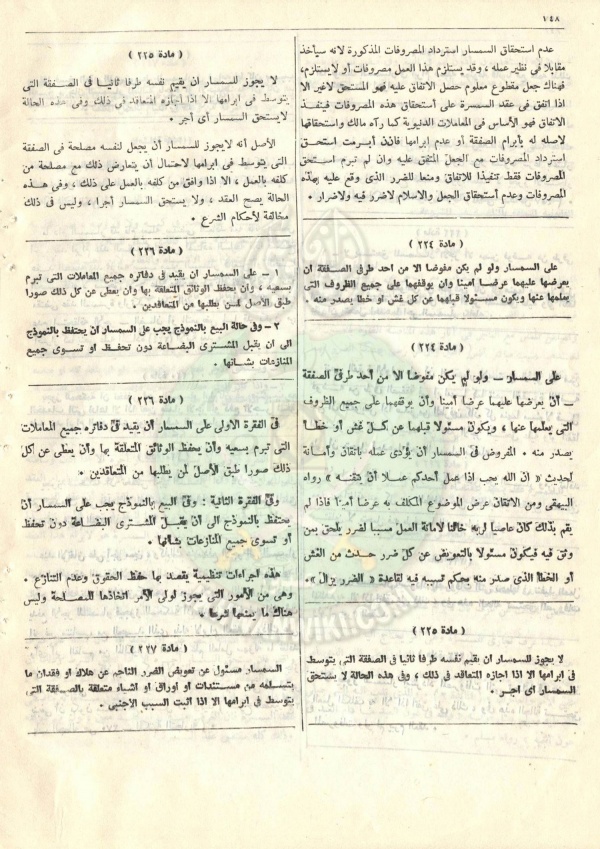 ١٤٨
عدم استحقاق السمسار استرداد المصروفات المذكورة لانه سيأخذ
مقابلا فى نظير عمله ، وقد يستلزم هذا العمل مصروفات أو لايستلزم،
فهناك جعل مقطوع معلوم حصل الاتفاق عليه فهو المستحق لاغير الا
اذا اتفق فى عقد السمسرة على أستحقاق هذه المصروفات فينفذ
الاتفاق فهو الأساس فى المعاملات الدنيوية كما رآه مالك واستحقاقها
لاصله له بأبرام الصفقة أو عدم ابرامها فاذن أبرمت استحق
استرداد المصروفات مع الجعل المتفق عليه وان لم تبرم استحق
المصروفات فقط تنفيذا للاتفاق ومنعا للضرر الذى وقع عليه بهذه
المصروفات وعدم أستحقاق الجعل والاسلام لاضرر فيه ولاضرار .
( مادة ٢٢٤ )
على السمسار ولو لم يكن مفوضا الا من احد طرفى الصفقة ان
يعرضها عليهما عرضا امينا وان يوقفهما على جميع الظروف التى
يعلمها عنها ويكون مسئولا قبلهما عن كل غش او خطا يصدر منه .
( مادة ٢٢٤ )
على السمسار ــ ولو لم يكن مفوضا الا من أحد طرفى الصفقة
ــ أن يعرضها عليهما عرضا أمينا وأن يوقفهما على جميع الظروف
التى يعلمها عنها ، ويكون مسئولا قبلهما عن كل غش أو خطأ
يصدر منه . المفروض فى السمسار أن يؤدى عمله باتقان وأمانة
لحديث « ان الله يحب اذا عمل أحدكم عملا أن يتقنه » رواه
البيهقى ومن الاتقان عرض الموضوع المكلف به عرضا أمينا فاذا لم
يقم بذلك كان عاصيا لربه خائنا لامانة العمل مسببا لضرر يلحق بمن
وثق فيه فيكون مسئولا بالتعويض عن كل ضرر حدث من الغش
أو الخطأ الذى صدر منه بحكم تسببه فيه لقاعدة « الضرر يزال».
( مادة ٢٢٥ )
لا يجوز للسمسار ان يقيم نفسه طرفا ثانيا فى الصفقة التى يتوسط
فى ابرامها الا اذا اجازه المتعاقد فى ذلك ، وفى هذه الحالة لا يستحق
السمسار اى اجر .
( مادة ٢٢٥ )
لا يجوز للسمسار ان يقيم نفسه طرفا ثانيا فى الصفقة التى
يتوسط فى ابرامها الا اذا أجازه المتعاقد فى ذلك وفى هذه الحالة
لايستحق السمسار أى أجر .
الأصل أنه لايجوز للسمسار أن يجعل لنفسه مصلحة فى الصفقة
التى يتوسط فى ابرامها لاحتمال أن يتعارض ذلك مع مصلحة من
كلفه بالعمل ، الا اذا وافق من كلفه بالعمل على ذلك ، وفى هذه
الحالة يصح العقد ، ولا يستحق السمسار أجرا ، وليس فى ذلك
مخالفة لأحكام الشرع .
( مادة ٢٢٦ )
١ ــ على السمسار ان يقيد فى دفاتره جميع المعاملات التى تبرم
بسعيه ، وان يحفظ الوثائق المتعلقة بها وان يعطى عن كل ذلك صورا
طبق الأصل لمن يطلبها من المتعاقدين .
٢ ــ وفى حالة البيع بالنموذج يجب على السمسار ان يحتفظ بالنموذج
الى ان يقبل المشترى البضاعة دون تحفظ او تسوى جميع
المنازعات بشانها .
( مادة ٢٢٦ )
فى الفقرة الاولى على السمسار أن يقيد فى دفاتره جميع المعاملات
التى تبرم بسعيه وأن يحفظ الوثائق المتعلقة بها وأن يعطى عن كل
ذلك صورا طبق الأصل لمن يطلبها من المتعاقدين .
وفى الفقرة الثانية : وفى البيع بالنموذج يجب على السمسار أن
يحتفظ بالنموذج الى أن يقبل المشترى البضاعة دون تحفظ
أو تسوى جميع المنازعات بشأنها .
هذه اجراءات تنظيمية يقصد بها حفظ الحقوق وعدم التنازع .
وهى من الأمور التى يجوز لولى الأمر اتخاذها للمصلحة وليس
هناك ما يمنعها شرعا .
( مادة ٢٢٧ )
السمسار مسئول عن تعويض الضرر الناجم عن هلاك او فقدان ما
يتسلمه من مستندات او اوراق او اشياء متعلقة بالصفقة التى
يتوسط فى ابرامها الا اذا اثبت السبب الأجنبى .